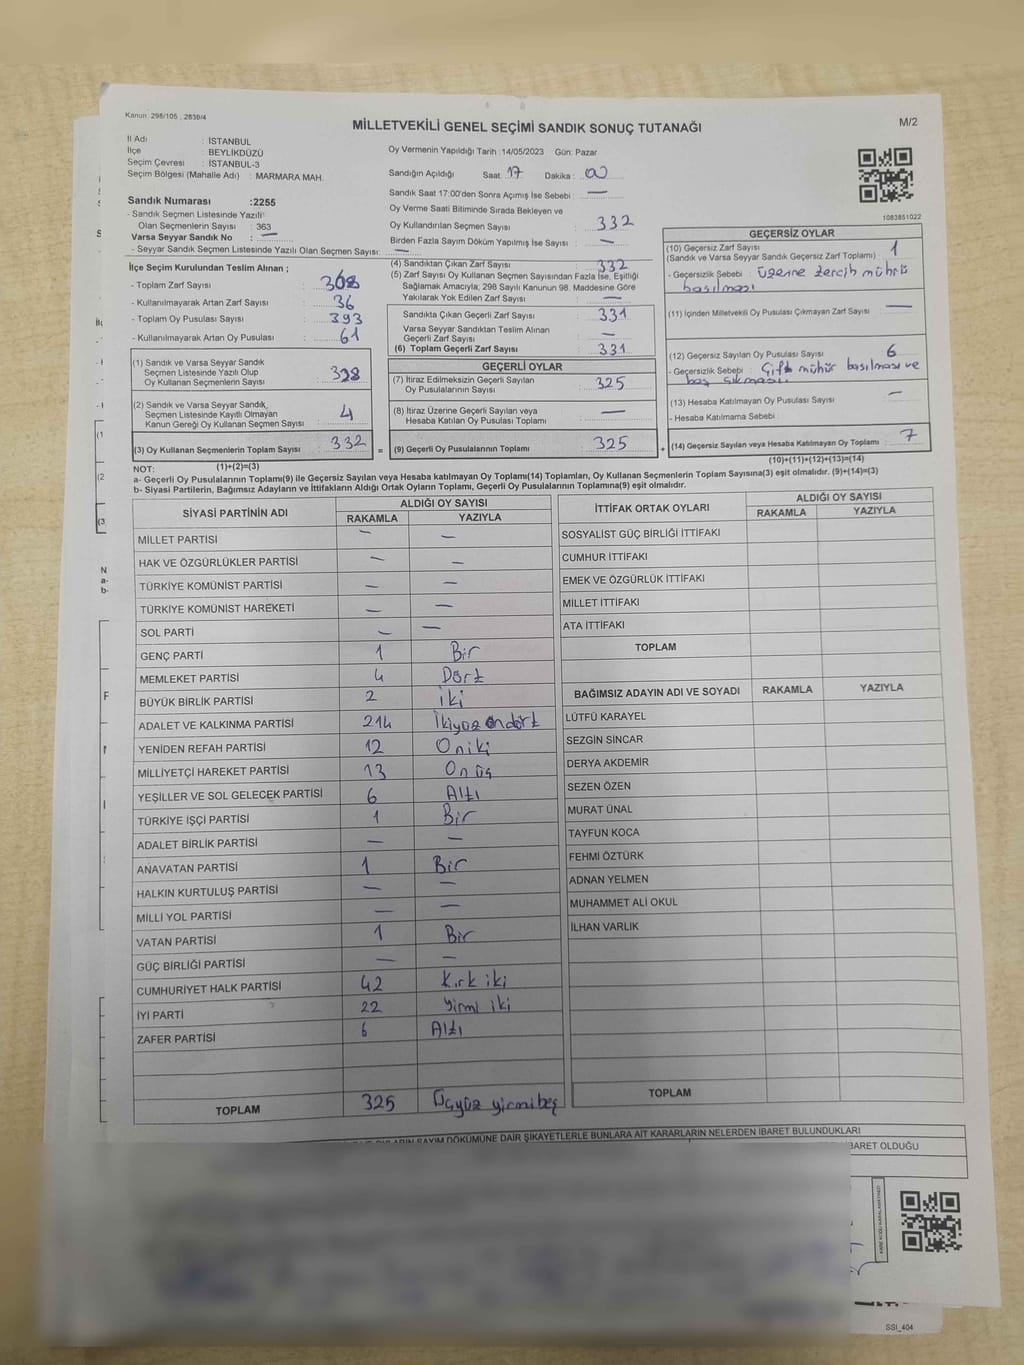 Kanun: 298/105 , 2839/4
MİLLETVEKİLİ GENEL SEÇİMİ SANDIK SONUÇ TUTANAĞI
M/2
İl Adı : İSTANBUL
İlçe : BEYLİKDÜZÜ
Seçim Çevresi : İSTANBUL-3
Seçim Bölgesi (Mahalle Adı) : MARMARA MAH.
Oy Vermenin Yapıldığı Tarih :14/05/2023 Gün: Pazar
Sandığın Açıldığı Saat : 17 Dakika : 00
Sandık Saat 17:00'den Sonra Açımış İse Sebebi : —
Oy Verme Saati Bitiminde Sırada Bekleyen ve
Oy Kullandırılan Seçmen Sayısı : 332
Birden Fazla Sayım Döküm Yapılmış İse Sayısı : —
Sandık Numarası :2255
- Sandık Seçmen Listesinde Yazılı
Olan Seçmenlerin Sayısı : 363
Varsa Seyyar Sandık No : —
- Seyyar Sandık Seçmen Listesinde Yazılı Olan Seçmen Sayısı: —
1083851022
İlçe Seçim Kurulundan Teslim Alınan ;
- Toplam Zarf Sayısı : 368
- Kullanılmayarak Artan Zarf Sayısı : 36
- Toplam Oy Pusulası Sayısı : 393
- Kullanılmayarak Artan Oy Pusulası : 61
(1) Sandık ve Varsa Seyyar Sandık
Seçmen Listesinde Yazılı Olup
Oy Kullanan Seçmenlerin Sayısı : 328
(2) Sandık ve Varsa Seyyar Sandık,
Seçmen Listesinde Kayıtlı Olmayan
Kanun Gereği Oy Kullanan Seçmen Sayısı : 4
(3) Oy Kullanan Seçmenlerin Toplam Sayısı : 332 =
(4) Sandıktan Çıkan Zarf Sayısı : 332
(5) Zarf Sayısı Oy Kullanan Seçmen Sayısından Fazla İse, Eşitliği
Sağlamak Amacıyla; 298 Sayılı Kanunun 98. Maddesine Göre
Yakılarak Yok Edilen Zarf Sayısı : —
Sandıkta Çıkan Geçerli Zarf Sayısı : 331
Varsa Seyyar Sandıktan Teslim Alınan
Geçerli Zarf Sayısı : —
(6) Toplam Geçerli Zarf Sayısı : 331
GEÇERLİ OYLAR
(7) İtiraz Edilmeksizin Geçerli Sayılan
Oy Pusulalarının Sayısı : 325
(8) İtiraz Üzerine Geçerli Sayılan veya
Hesaba Katılan Oy Pusulası Toplamı : —
(9) Geçerli Oy Pusulalarının Toplamı : 325 +
GEÇERSİZ OYLAR
(10) Geçersiz Zarf Sayısı
(Sandık ve Varsa Seyyar Sandık Geçersiz Zarf Toplamı) : 1
- Geçersizlik Sebebi : Üzerine tercih mührü
basılması
(11) İçinden Milletvekili Oy Pusulası Çıkmayan Zarf Sayısı : —
(12) Geçersiz Sayılan Oy Pusulası Sayısı : 6
- Geçersizlik Sebebi : Çift mühür basılması ve
boş çıkması
(13) Hesaba Katılmayan Oy Pusulası Sayısı : —
- Hesaba Katılmama Sebebi :
(14) Geçersiz Sayılan veya Hesaba Katılmayan Oy Toplamı : 7
NOT: (1)+(2)=(3)
(10)+(11)+(12)+(13)=(14)
a- Geçerli Oy Pusulalarının Toplamı(9) ile Geçersiz Sayılan veya Hesaba katılmayan Oy Toplamı(14) Toplamları, Oy Kullanan Seçmenlerin Toplam Sayısına(3) eşit olmalıdır. (9)+(14)=(3)
b- Siyasi Partilerin, Bağımsız Adayların ve İttifakların Aldığı Ortak Oyların Toplamı, Geçerli Oy Pusulalarının Toplamına(9) eşit olmalıdır.
SİYASİ PARTİNİN ADI ALDIĞI OY SAYISI
RAKAMLA YAZIYLA
MİLLET PARTİSİ — —
HAK VE ÖZGÜRLÜKLER PARTİSİ — —
TÜRKİYE KOMÜNİST PARTİSİ — —
TÜRKİYE KOMÜNİST HAREKETİ — —
SOL PARTİ — —
GENÇ PARTİ 1 Bir
MEMLEKET PARTİSİ 4 Dört
BÜYÜK BİRLİK PARTİSİ 2 iki
ADALET VE KALKINMA PARTİSİ 214 İkiyüz ondört
YENİDEN REFAH PARTİSİ 12 Oniki
MİLLİYETÇİ HAREKET PARTİSİ 13 Onüç
YEŞİLLER VE SOL GELECEK PARTİSİ 6 Altı
TÜRKİYE İŞÇİ PARTİSİ 1 Bir
ADALET BİRLİK PARTİSİ — —
ANAVATAN PARTİSİ 1 Bir
HALKIN KURTULUŞ PARTİSİ — —
MİLLİ YOL PARTİSİ — —
VATAN PARTİSİ 1 Bir
GÜÇ BİRLİĞİ PARTİSİ — —
CUMHURİYET HALK PARTİSİ 42 Kırk iki
İYİ PARTİ 22 Yirmi iki
ZAFER PARTİSİ 6 Altı
TOPLAM 325 Üçyüz yirmibeş
İTTİFAK ORTAK OYLARI ALDIĞI OY SAYISI
RAKAMLA YAZIYLA
SOSYALİST GÜÇ BİRLİĞİ İTTİFAKI
CUMHUR İTTİFAKI
EMEK VE ÖZGÜRLÜK İTTİFAKI
MİLLET İTTİFAKI
ATA İTTİFAKI
TOPLAM
BAĞIMSIZ ADAYIN ADI VE SOYADI RAKAMLA YAZIYLA
LÜTFÜ KARAYEL
SEZGİN SİNCAR
DERYA AKDEMİR
SEZEN ÖZEN
MURAT ÜNAL
TAYFUN KOCA
FEHMİ ÖZTÜRK
ADNAN YELMEN
MUHAMMET ALİ OKUL
İLHAN VARLIK
TOPLAM
SAYIM DÖKÜMÜNE DAİR ŞİKAYETLERLE BUNLARA AİT KARARLARIN NELERDEN İBARET BULUNDUKLARI
İBARET OLDUĞU
SSI_404